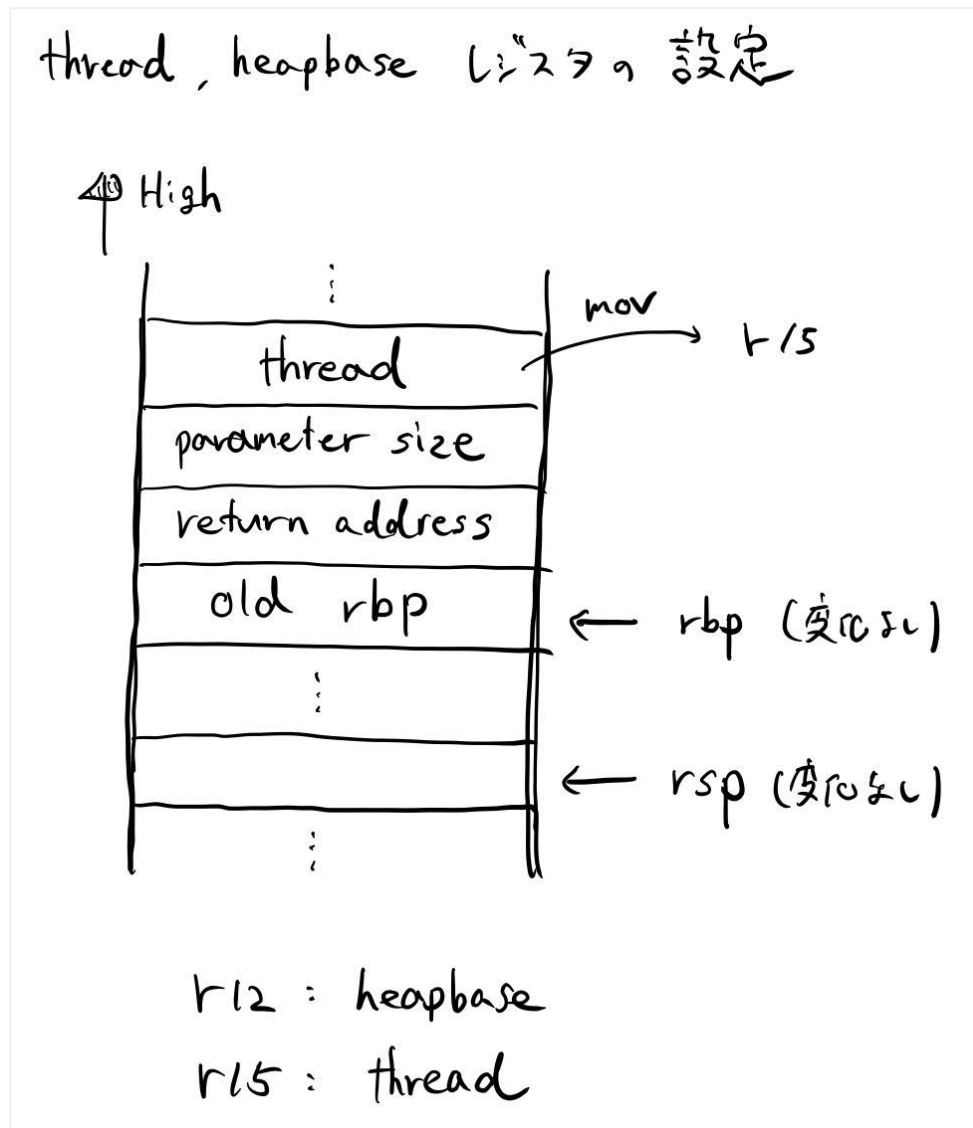 thread, heapbase レジスタの 設定
High
⋮
thread
mov
r15
parameter size
return address
old rbp
← rbp (変化なし)
⋮
← rsp (変化なし)
⋮
r12 : heapbase
r15 : thread